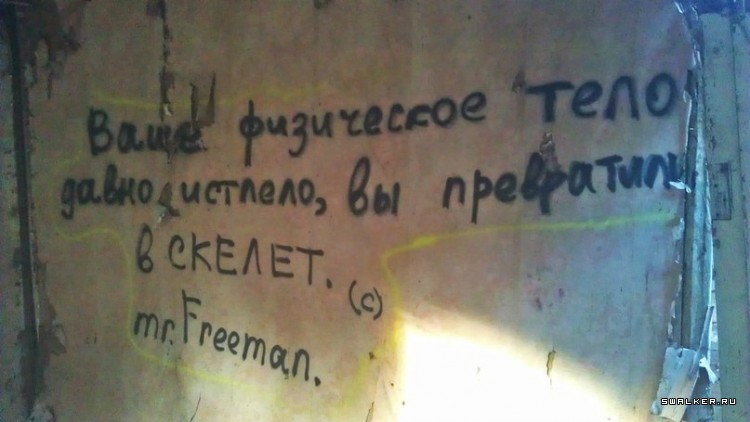 Ваше физическое тело
давно истлело, вы превратили
в СКЕЛЕТ.
(c)
mr. Freeman.
SWALKER.RU